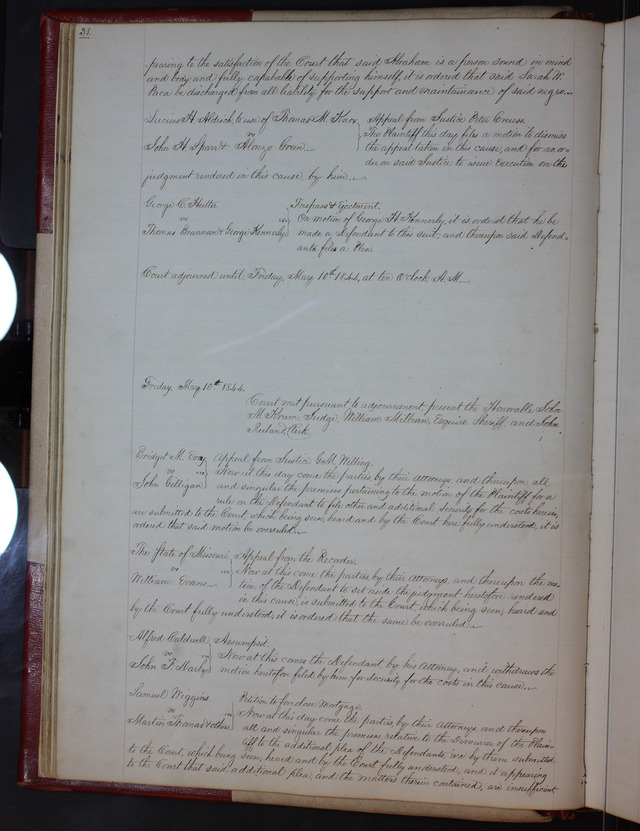 31.
pearing to the satisfaction of the Court that said Abraham is a person sound in mind
and body and fully capable of supporting himself, it is ordered that said Sarah W.
Paca be discharged from all liability for the support and maintainance of said negro.
Lucius H Aldrich to use of Thomas M. Knox
vs
John H Sparr & Alonzo Gran
Appeal from Justice Peter
The Plaintiff this day files a motion to dismiss
the appeal taken in this cause, and for an or-
der on said Justice to issue Execution on the
judgment rendered in this cause, by him.
George C. Shutter
vs
Thomas Brannan & George Kennerly
Trespass & Ejectment.
On motion of George H. Kennerly, it is ordered that he be
made a Defendant to this suit, and thereupon said Defend-
ants file a Plea.
Court adjourned until Friday, May 10th 1844, at ten o'clock A.M.
Friday May 10th 1844.
Court met pursuant to adjournment, present the Honorable John
M. Krum, Judge, William Milburn, Esquire Sheriff, and John
Ruland, Clerk.
Bridget M.
vs
John Gilligan
Appeal from Justice
Now at this day come the parties by their Attorneys, and thereupon all
and singular the premises pertaining to the motion of the Plaintiff for a
rule on the Defendant to file other and additional security for the costs herein,
are submitted to the Court, which being seen, heard and by the Court here fully understood, it is
ordered that said motion be overruled.
The State of Missouri
vs
William Evans
Appeal from the Recorder.
Now at this come the parties by their Attorneys, and thereupon the mo-
tion of the Defendant to set aside the judgment heretofore rendered
in this cause, is submitted to the Court, which being seen, heard and
by the Court fully understood, it is ordered that the same be overruled.
Alfred Caldwell
vs
John F. Darby
Assumpsit.
Now at this comes the Defendant, by his Attorney, and withdraws the
motion heretofore filed by him for security for the costs in this cause.
Samuel Wiggins
vs
Martin Thomas & others
Petition to foreclose Mortgage.
Now at this day come the parties, by their Attorneys and thereupon
all and singular the premises relative to the Demurrer of the Plain-
tiff to the additional plea of the Defendants are by them submitted
to the Court, which being seen, heard and by the Court fully understood, and it appearing
to the Court that said additional plea, and the matters therein contained, are insufficient